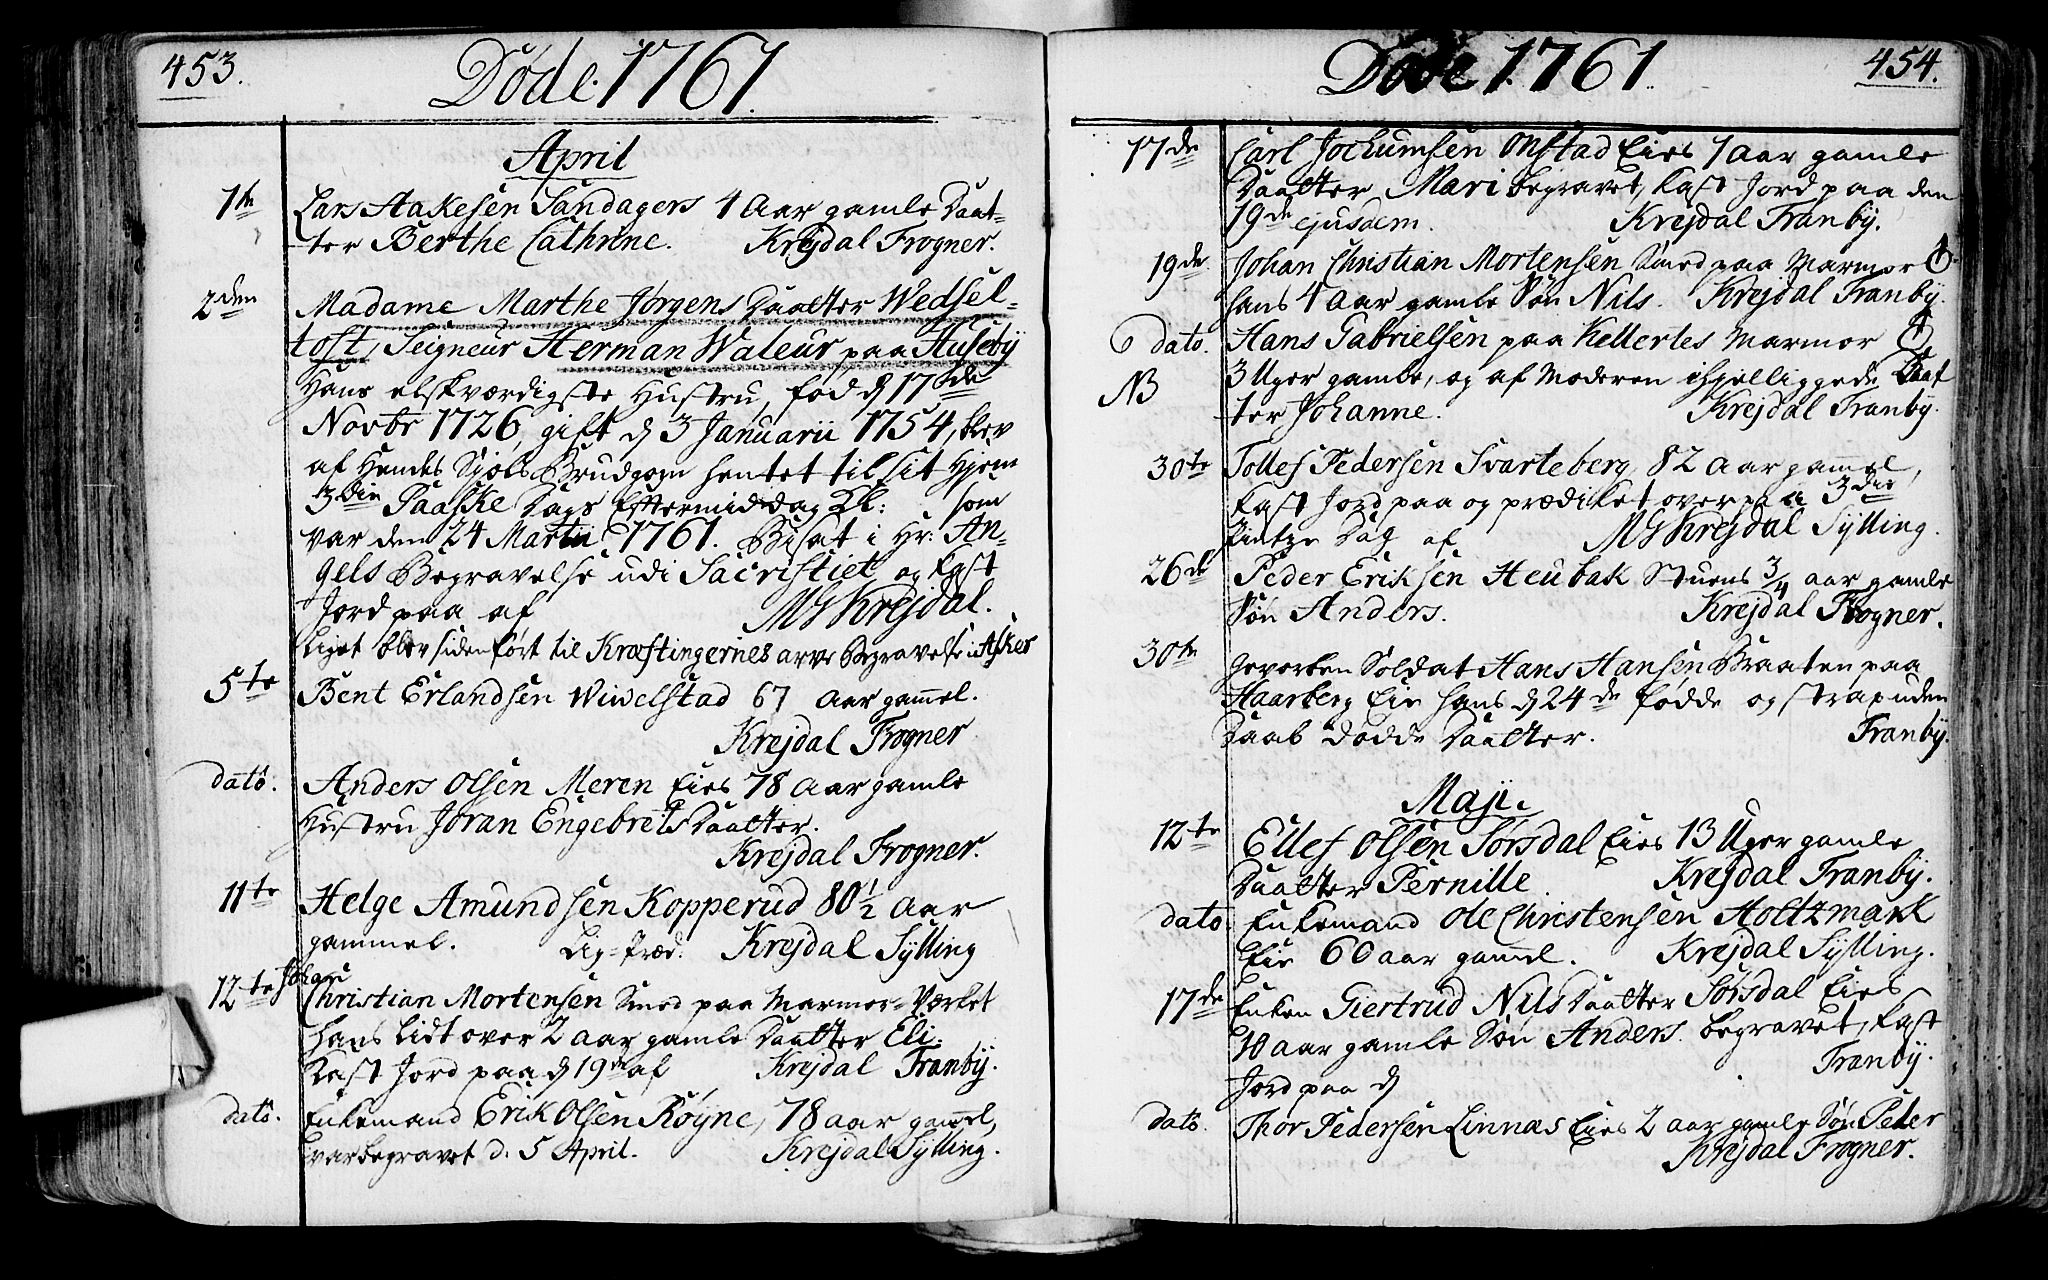 453.
Døde. 1761.
April
1te
Lars Aakesen Sandagers 4 Aar gamle Daat-
ter Berthe Cathrine. Krejdal Frogner.
2den
Madame Marthe Jørgens Daatter Wedsel-
toft, Seigneur Herman Waleur paa Huseby
Hans elskværdigste Hustru, fød d 17de
Novbr 1726, gift d 3 Januarii 1754, blev
af Hendes Sjæls Brudgom hentet til sit Hjem
3die Paaske Dags Eftermiddag Kl: som
var den 24 Martii 1761. Bisat i Hr: An-
gels Begravelse udi Sacristiet, og kast
Jord paa af MG Krejdal.
Liget blev siden ført til Kræftingernes arve Begravelse i Asker
5te
Bent Erlandsen Wiwelstad 67 Aar gamel.
Krejdal Frogner
dato.
Anders Olsen Meren Eies 78 Aar gamle
Hustru Jøran Engebrets Daatter.
Krejdal Frogner.
11te
Helge Amundsen Kopperud 80 1/2 Aar
gammel. Lig-Præd. Krejdal Sylling
12te
Johan
Christian Mortensen Smed paa Marmor-Værket
hans lidt over 2 aar gamle Daatter Eli.
Kast Jord paa d 19de af Krejdal Franby.
dato.
Enkemand Erik Olsen Røyne, 78 aar gamel,
var begravet d. 5 April. Krejdal Sylling.
454.
Døde 1761.
17de
Carl Jochumsen Onstad Eies 1 Aar gamle
Daatter Mari begravet, kast Jord paa den
19de ejusdem. Krejdal Franby.
19de
Johan Christian Mortensen Smed paa Marmor
hans 4 Aar gamle Søn Nils. Krejdal Franby.
dato.
Hans Gabrielsen paa Kellertes Marmor
NB
3 Uger gamle, og af Moderen ihjelliggede Daat
ter Johanne. Krejdal Franby.
30te
Tollef Pedersen Svarteberg 82 Aar gamel,
kast Jord paa og prædiket over paa 3die
Pintze Dag af MG Krejdal Sylling.
26de
Peder Eriksen Heubak Stuens 3/4 aar gamle
Søn Anders. Krejdal Frogner.
30te
Gevorben Soldat Hans Hansen Braaten paa
Haarberg Eie hans d 24de fødde og strax uden
Daab dødde Daatter. Franby.
Maji.
12te
Ellef Olsen Sørsdal Eies 13 Uger gamle
Daatter Pernille. Krejdal Franby.
dato
Enkemand Ole Christensen Holtzmark
Eie 60 aar gamel. Krejdal Sylling.
17de
Enken Giertrud Nils Daatter Sørsdal Eies
10 aar gamle Søn Anders. begravet, kast
Jord paa d Franby.
dato.
Thor Pedersen Linnæs Eies 2 aar gamle Søn Peder
Krejdal Frogner.